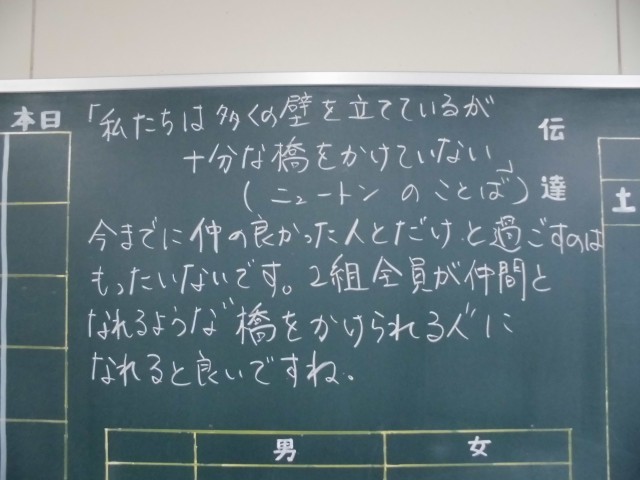 本日
「私たちは多くの壁を立てているが
十分な橋をかけていない」
(ニュートンのことば)
今までに仲の良かった人とだけと過ごすのは
もったいないです。2組全員が仲間と
なれるような"橋をかけられる人"に
なれると良いですね。
伝達
土
男 女